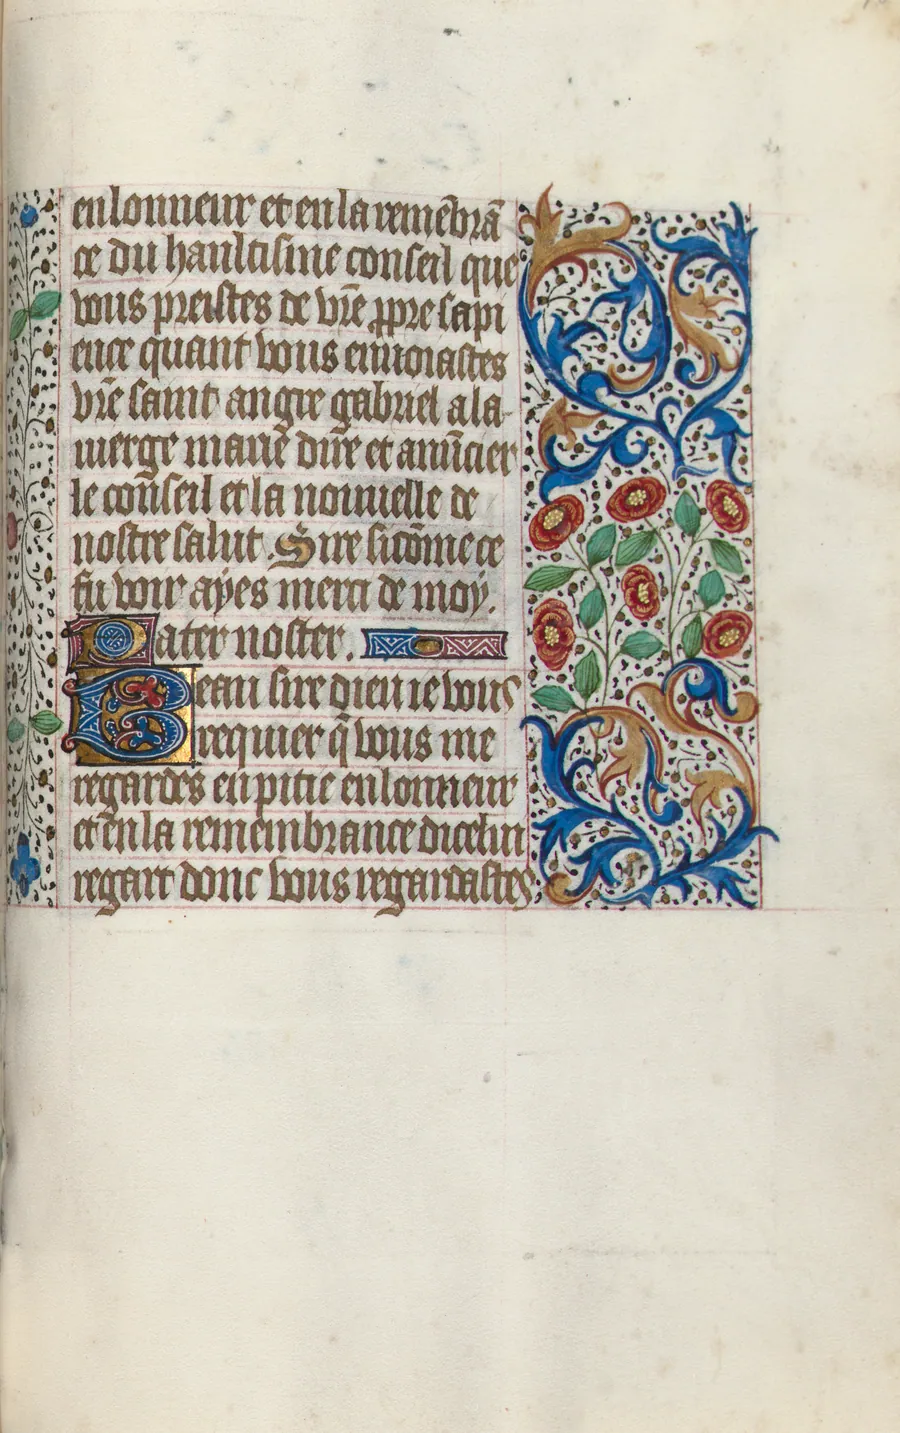 enlonneur et en la remẽbrã
ce du haultisme conseil que
vous preistes de vr̃e ꝓpre sapi
ence quant vous enuoiastes
vr̃e saint angre gabriel a la
uierge marie dire et anũcier
le cõseil et la nouuelle de
nostre salut. Sire si cõme ce
fu voir ayes merci de moy.
Pater noster.
Beau sire dieu ie vous
requier q̃ vous me
regardes en pitie enlonneur
et en la remembrance dicelui
regart donc vous regardastes